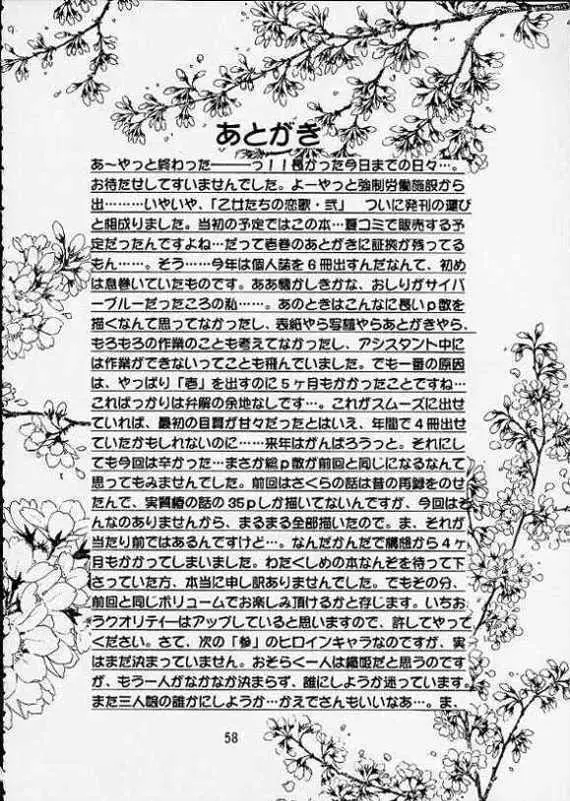 あとがき
あ〜やっと終わった————っ！！長かった今日までの日々…。
お待たせしてすいませんでした。よーやっと強制労働施設から
出………いやいや、「乙女たちの恋歌・弐」　ついに発刊の運び
と相成りました。当初の予定ではこの本…夏コミで販売する予
定だったんですよね…だって壱巻のあとがきに証拠が残ってる
もん……。そう……今年は個人誌を６冊出すんだなんて、初め
は息巻いていたものです。ああ懐かしきかな、おしりがサイバ
ーブルーだったころの私……。あのときはこんなに長いｐ数を
描くなんて思ってなかったし、表紙やら写植やらあとがきやら、
もろもろの作業のことも考えてなかったし、アシスタント中に
は作業ができないってことも飛んでいました。でも一番の原因
は、やっぱり「壱」を出すのに５ヶ月もかかったことですね…
こればっかりは弁解の余地なしです…。これがスムーズに出せ
ていれば、最初の目算が甘々だったとはいえ、年間で４冊出せ
ていたかもしれないのに……来年はがんばろうっと。それにし
ても今回は辛かった…まさか総ｐ数が前回と同じになるなんて
思ってもみませんでした。前回はさくらの話は昔の再録をのせ
たんで、実質椿の話の３５ｐしか描いてないんですが、今回はそ
んなのありませんから、まるまる全部描いたので。ま、それが
当たり前ではあるんですけど…。なんだかんだで構想から４ヶ
月もかかってしまいました。わたくしめの本なんぞを待って下
さっていた方、本当に申し訳ありませんでした。でもその分、
前回と同じボリュームでお楽しみ頂けるかと存じます。いちお
うクオリティーはアップしていると思いますので、許してやって
ください。さて、次の「参」のヒロインキャラなのですが、実
はまだ決まっていません。おそらく一人は織姫だと思うのです
が、もう一人がなかなか決まらず、誰にしようか迷っています。
また三人娘の誰かにしようか…かえでさんもいいなあ…。ま、
58